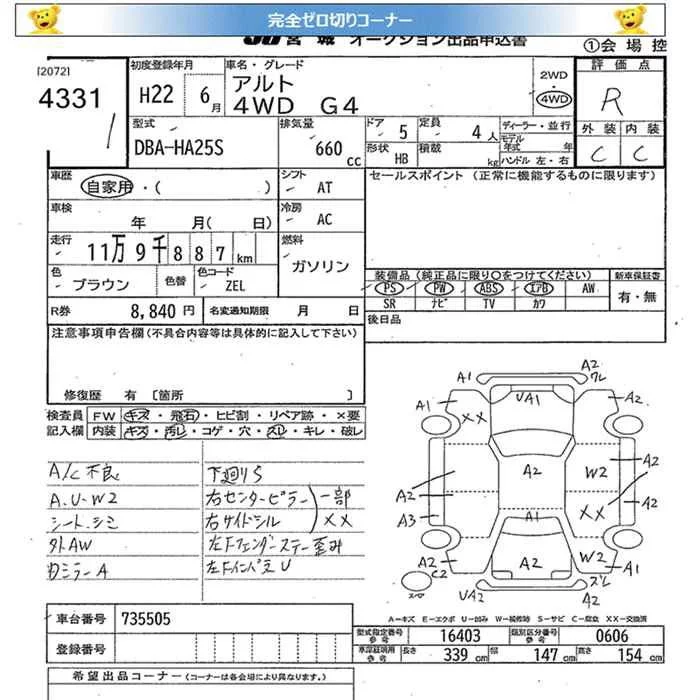 完全ゼロ切りコーナー
JU宮城 オークション出品申込書
①会場控
[2072]
4331
1
初度登録年月
H22 6月
車名・グレード
アルト
4WD G4
2WD
4WD
評価点
R
外装 内装
C C
型式
DBA-HA25S
排気量
660cc
ドア 5
形状 HB
定員 4人
積載 kg
ディーラー・並行
モデル年式 年
ハンドル 左・右
車歴
自家用・( )
シフト AT
セールスポイント (正常に機能するものに限ります)
車検
年 月( 日)
冷房 AC
走行
11万9千887km
燃料
ガソリン
色 ブラウン
色替
色コード ZEL
装備品 (純正品に限り○をつけてください)
新車保証書
PS PW ABS エアB AW
有・無
SR ナビ TV カワ
R券 8,840円
名変通知期限 月 日
後日品
注意事項申告欄(不具合内容等は具体的に記入して下さい)
修復歴 有 [箇所 ]
検査員記入欄
FW キズ・飛石・ヒビ割・リペア跡・×要
内装 キズ・汚レ・コゲ・穴・スレ・キレ・破レ
A/C不良
A.U.W2
シートシミ
外AW
Dミラー A
下廻りS
右センターピラー
右サイドシル
一部
××
左Fフェンダーステー歪み
左Fインパネ U
A1
A2
ワレ
A1
××
UA1
A2
A2
A2
W2
A2
A2
A3
A1
××
A2
A2
C2
A2
W2
A1
UA2
ズレ
A2
A=キズ E=エクボ U=凹み W=補修跡 S=サビ C=腐食 XX=交換済
車台番号 735505
登録番号
型式指定番号参考 16403
類別区分番号参考 0606
車庫証明用参考 長さ 339cm 幅 147cm 高さ 154cm
希望出品コーナー (コーナーは各会場により異なります。)